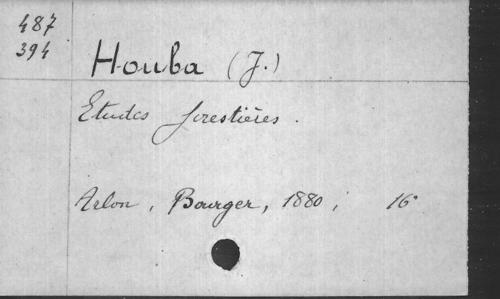 487
394
Houba (J.)
Etudes forestières.
Arlon, Bourger, 1880; 16°